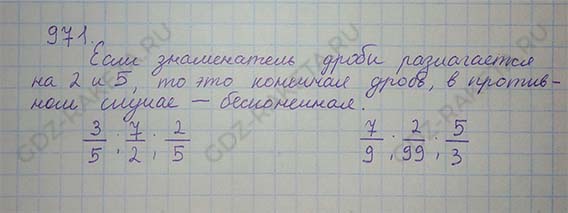 971.
Если знаменатель дроби разлагается
на 2 и 5, то это конечная дробь, в против-
ном случае — бесконечная.
3/5 ; 7/2 ; 2/5 7/9 ; 2/99 ; 5/3
GDZ-RAKETA.RU